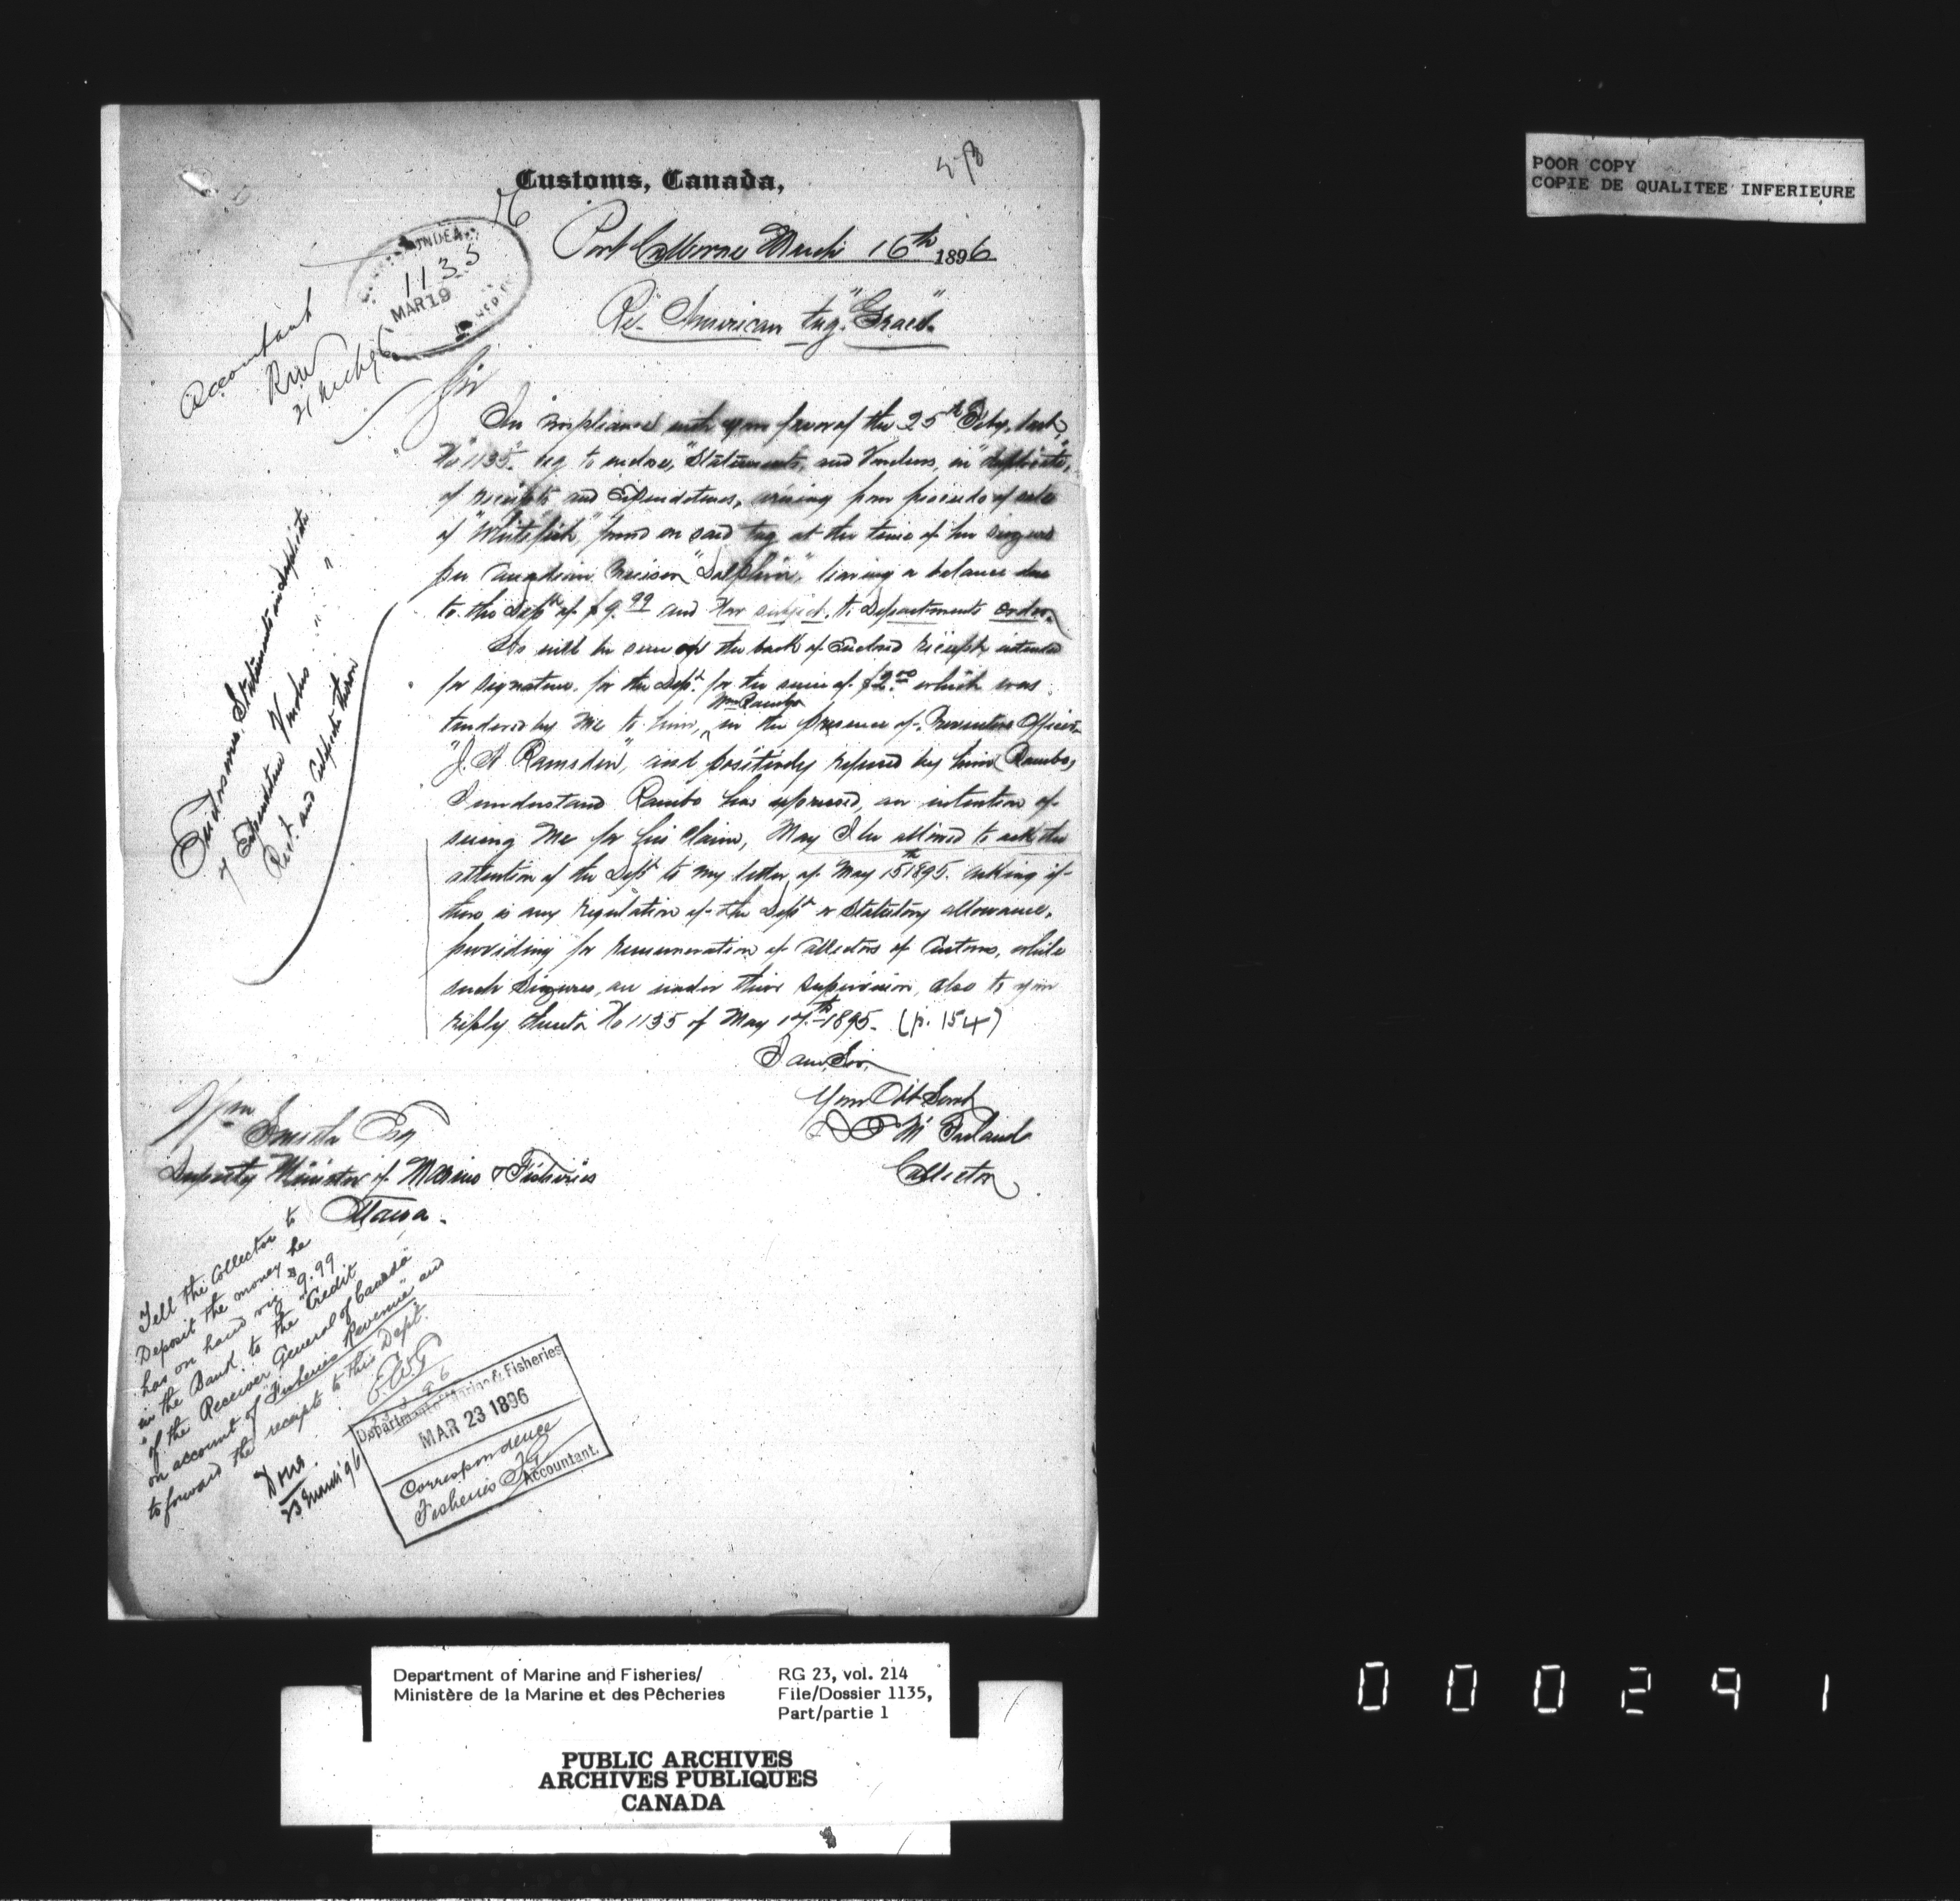 POOR COPY
COPIE DE QUALITEE INFERIEURE
Customs, Canada,
Port Colborne March 16th 1896
Re- American tug "Grace"
1135
MAR 19
Accountant
Sir
In compliance with your favor of the 25th Feby. last,
No 1135. beg to enclose, "Statements, and Vouchers, in "duplicate",
of receipts and Expenditures, arising from proceeds of sale
of "Whitefish," found on said tug at the time of her seizure
per Canadian Cruiser "Dolphin", leaving a balance due
to the Dept of $9.99 and Now subject, to Departments order.
It will be seen on the back of Enclosed receipt intended
for signature. for the Dept. for the sum of $2.00 which was
tendered by me to him, Wm Rambo in the presence of Preventive Officer
"J. A. Ramsden", and positively refused by him (Rambo,
I understand Rambo has expressed, an intention of
suing me for his Claim, May I be allowed to ask the
attention of the Dept to my letter of May 15th 1895. asking if
there is any regulation of the Dept or Statutory allowance,
providing for remuneration of Collectors of Customs, while
such Seizures, are under their supervision, also to your
reply thereto No 1135 of May 17th 1895. (p. 154)
I am, Sir,
Your Obt Servt
McFarland
Collector
Enclosures, Statements in duplicate
of Expenditure Vouchers " " "
Rect. and Certificate thereon
Esq
Deputy Minister of Marine & Fisheries
Ottawa.
Tell the Collector to
Deposit the money he
has on hand viz $9.99
in the Bank to the "Credit
of the Receiver General of Canada
on account of "Fisheries Revenue" and
to forward the receipts to this Dept.
23.3.96
Done
23 March 96
Department of Marine & Fisheries
MAR 23 1896
Correspondence
Fisheries
Accountant.
Department of Marine and Fisheries/
Ministère de la Marine et des Pêcheries
RG 23, vol. 214
File/Dossier 1135,
Part/partie 1
PUBLIC ARCHIVES
ARCHIVES PUBLIQUES
CANADA
000291